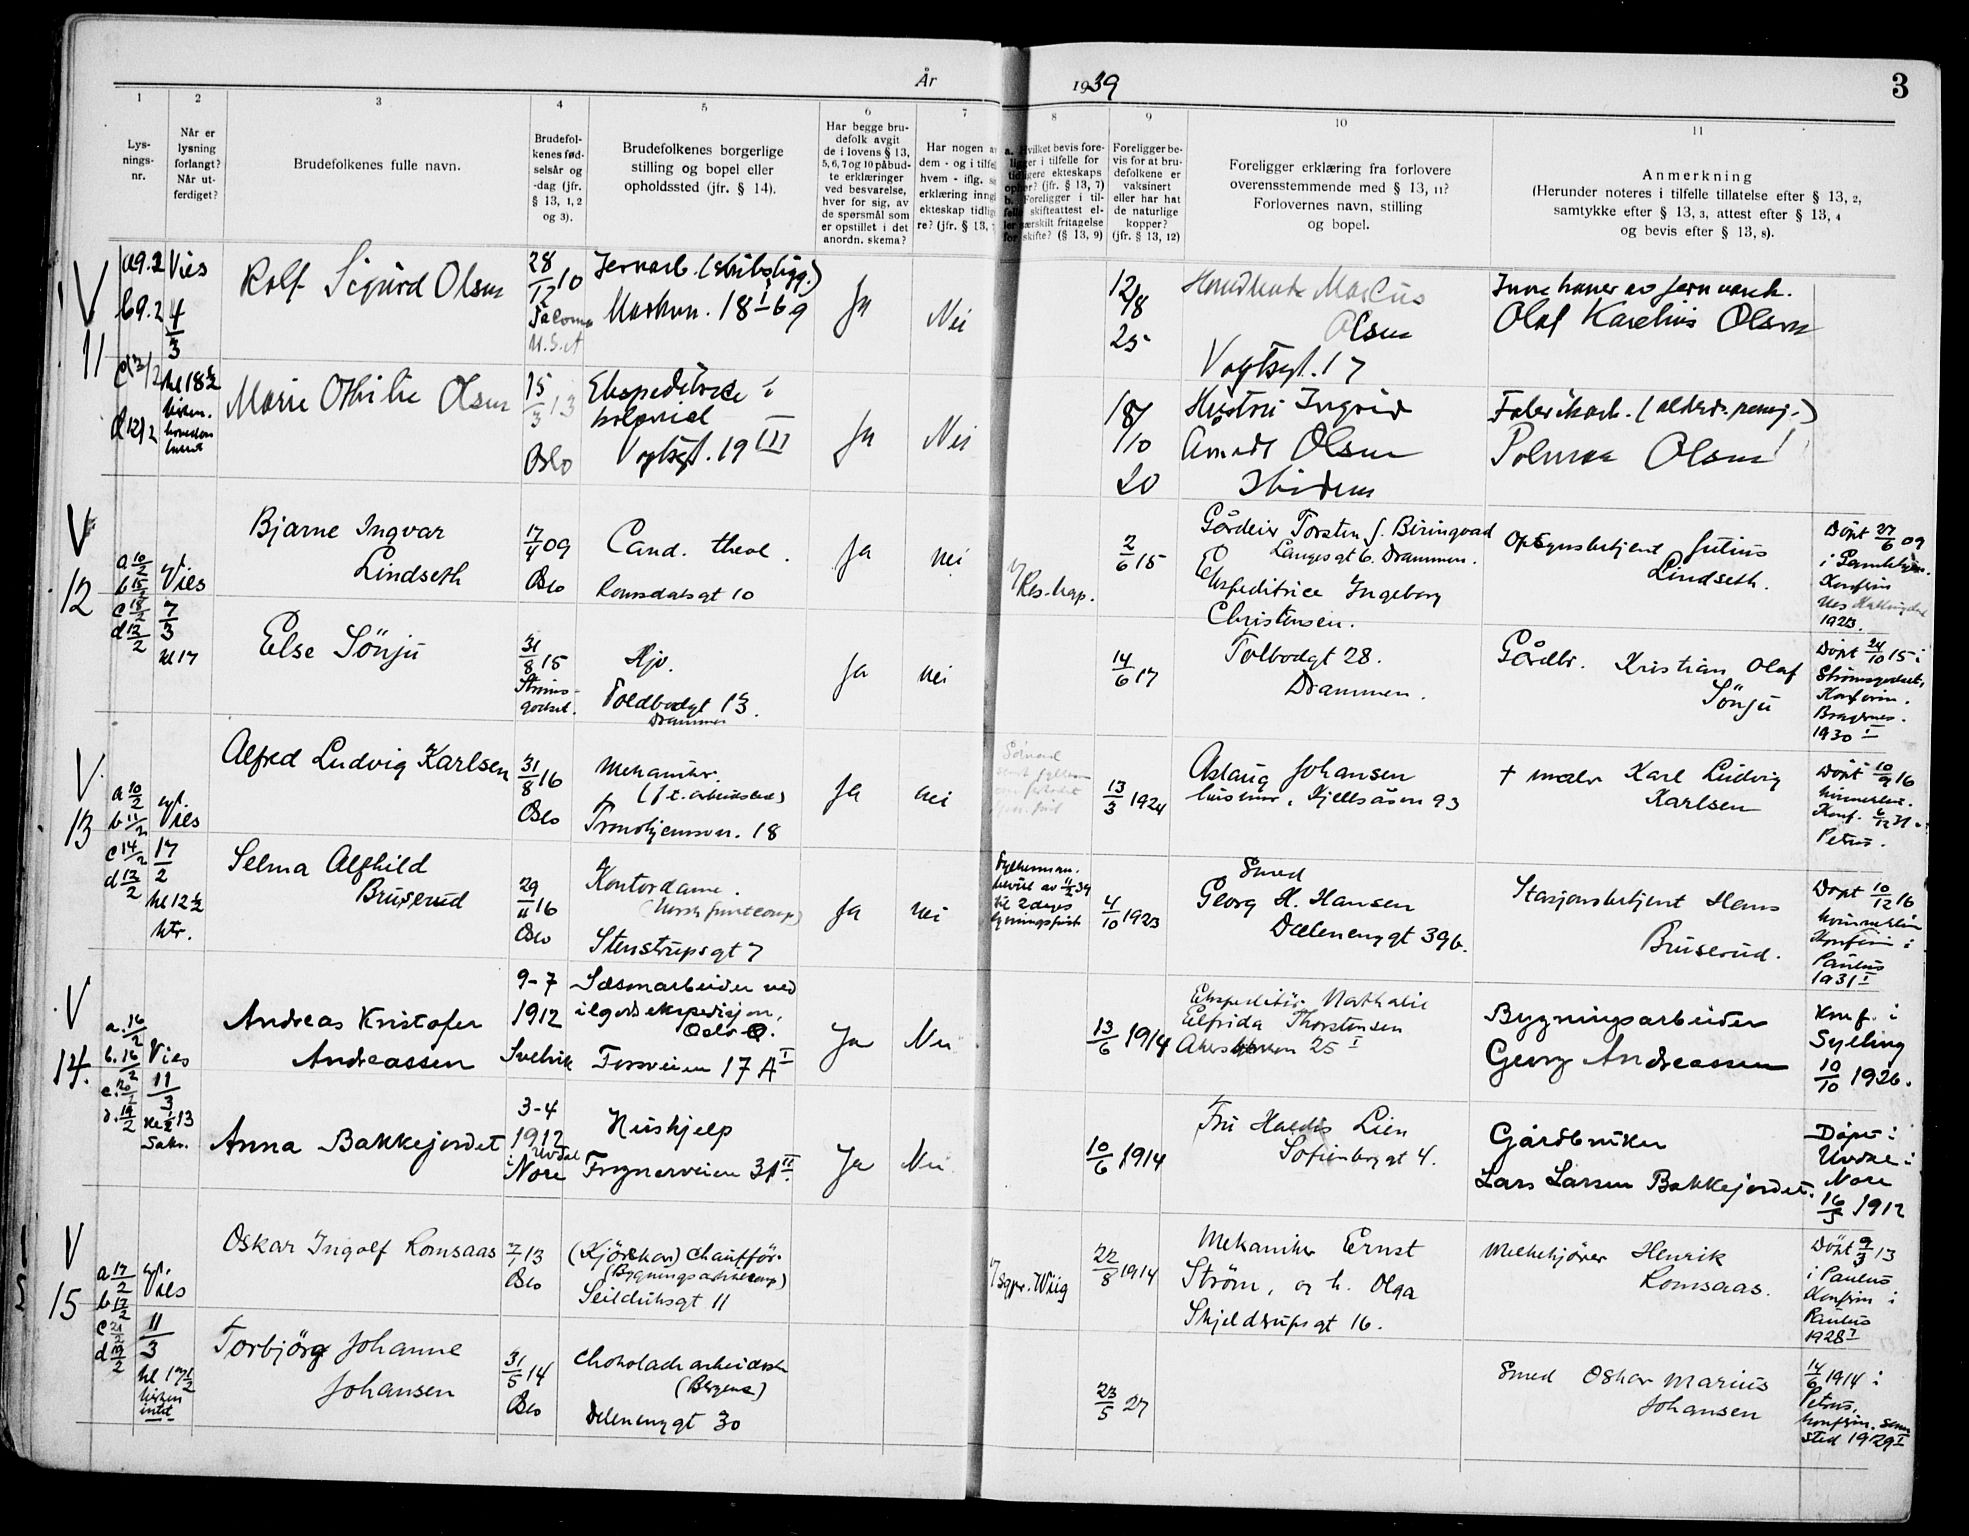 År 1939
3
1
2
3
4
5
6
7
8
9
10
11
Lys-
nings-
nr.
Når er
lysning
forlangt?
Når ut-
ferdiget?
Brudefolkenes fulle navn.
Brudefol-
kenes fød-
selsår og
-dag (jfr.
§ 13, 1, 2
og 3).
Brudefolkenes borgerlige
stilling og bopel eller
opholdssted (jfr. § 14).
Har begge bru-
defolk avgit
de i lovens § 13,
5, 6, 7 og 10 påbud-
te erklæringer
ved besvarelse,
hver for sig, av
de spørsmål som
er opstillet i det
anordn. skema?
Har nogen
dem - og i
hvem - iflg.
erklæring
ekteskap
re? (jfr. § 13,
a. Hvilket bevis fore-
ligger i tilfelle for
tidligere ekteskaps
ophør? (jfr. § 13, 7)
b. Foreligger i til-
felle skifteattest el-
ler særskilt fritagelse
for skifte? (§ 13, 9)
Foreligger be-
vis for at bru-
defolkene er
vaksinert
eller har hat
de naturlige
kopper?
(jfr. § 13, 12)
Foreligger erklæring fra forlovere
overensstemmende med § 13, 11?
Forlovernes navn, stilling
og bopel.
Anmerkning
(Herunder noteres i tilfelle tillatelse efter § 13, 2,
samtykke efter § 13, 3, attest efter § 13, 4
og bevis efter § 13, 8).
V
11
a 9.2
b 9.2
Vies
4/3
Rolf Sigurd Olsen
28/12 10
Tacoma
U.S.A
18 b
Ja
Nei
12/8
25
Marius
Olsen
Vogtsgt. 17
Olaf Karelius Olsen
d 12/2
kl 18 1/2
Marie Othilie Olsen
15/3 13
Oslo
Ekspeditrice i
kolonial
Vogtsgt. 19 III
Ja
Nei
18/10
20
Hustru Ingrid
Olsen
Ibidem
Olsen
V
12
a 10/2
b 15/2
c 18/2
d 12/2
Vies
7/3
kl 17
Bjarne Ingvar
Lindseth
17/4 09
Oslo
Cand. theol.
Romsdalsgt 10
Ja
nei
Res. kap.
2/6 15
Gårdeier Torsten J. Biringvad
Langesgt 6. Drammen.
Ekspeditrice Ingeborg
Christensen.
Opsynsbetjent Julius
Lindseth.
Döpt 27/6 09
Konfirm
1923.
Else Sönju
31/8 15
Strøms-
godset.
Hjv.
Toldbodgt 13.
Drammen
Ja
nei
14/6 17
Tolbodgt 28.
Drammen.
Gårdbr. Kristian Olaf
Sönju
Döpt 24/10 15 i
Strömsgodset,
Konfirm.
Bragernes.
1930 I
V
13
a 10/2
b 11/2
c 14/2
d 12/2
Vies
17/2
kl 12 1/2
ktr.
Alfred Ludvig Karlsen
31/8 16
Oslo
Mekaniker.
Trondhjemsvn. 18
Ja
nei
13/3 1924
Aslaug Johansen
husmor, Kjelsåsvn 93
+ maler Karl Ludvig
Karlsen
Döpt 10/9 16
Konf. 6/12 31
Petrus.
Selma Alfhild
Bruserud
29/11 16
Oslo
Kontordame.
Stenstrupsgt 7
Ja
nei
Fylkesman.
bevill. av 11/2 39
til 2 dages
lysningsfrist
4/10 1923
Smed
Georg H. Hansen
Dælenenggt 39b.
Stasjonsbetjent Hans
Bruserud.
Döpt 10/12 16
Konfirm i
Paulus
1931 I
V
14.
a. 16/2
b. 16/2
c. 20/2
d. 19/2
Vies
11/3
kl 13 1/2
Sakr.
Andreas Kristofer
Andreassen
9-7
1912
Svelvik
Sæsonarbeider ved
ilgodsekspedisjon,
Oslo Ø.
Forsveien 17 A I
Ja
Nei
13/6 1914
Ekspeditör Nathalie
Elfrida Thorstensen
25 I
Bygningsarbeider
Georg Andreassen
Konf. i
Sylling
10/10 1926.
Anna Bakkejordet
3-4
1912
i Uvdal
Nore
Hushjelp
Frognerveien 31 II
Ja
Nei
10/6 1914
Fru Haldis Lien
Sofienberggt 4.
Gårdbruker
Lars Larsen Bakkejordet.
Döpt i
Uvdal i
Nore
16/5 1912
V
15
a 17/2
b 17/2
c 21/2
d 19/2
Vies
11/3
kl 17 1/2
kirken
Oskar Ingolf Romsaas
7/1 13
Oslo
Chaufför.
Seilduksgt 11
Sgpr. Wiig
22/8 1914
Mekaniker Ernst
Ström, og h. Olga
Skjeldrupsgt 16.
Melkekjörer Henrik
Romsaas.
Döpt 9/3 13
i Paulus
Konfirm i
Paulus
1928 I
Torbjörg Johanne
Johansen
31/5 14
Oslo
Chokoladearbeiderske
(Bergene)
Dælenenggt 30
23/5 27
Smed Oskar Marius
Johansen
14/6 1914 i
Petrus,
konfirm. samme
sted 1929 I